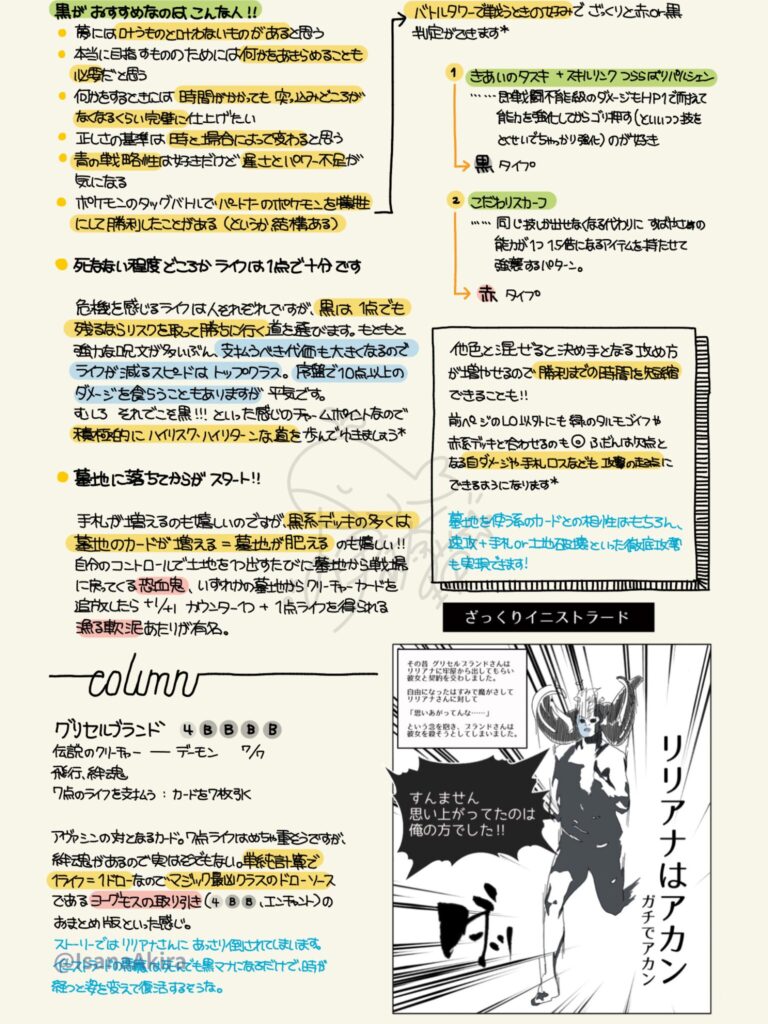 黒がおすすめなのはこんな人!!
夢には叶うものと叶わないものがあると思う
本当に目指すもののためには何かをあきらめることも
必要だと思う
何かをするときには時間がかかっても突っ込みどころが
なくなるくらい完璧に仕上げたい
正しさの基準は時と場合によって変わると思う
青の戦略性は好きだけど星士とパワー不足が
気になる
ポケモンのタッグバトルでパートナーのポケモンを犠牲
にして勝利したことがある(というか結構ある)
死なない程度どころかライフは1点で十分です
危機を感じるライフは人それぞれですが、黒は1点でも
残るならリスクを取って勝ちに行く道を選びます。もともと
強力な呪文が多いぶん、支払うべき代価も大きくなるので
ライフが減るスピードはトップクラス。序盤で10点以上の
ダメージを食らうこともありますが平気です。
むしろそれでこそ黒!!!といった感じのチャームポイントなので
積極的にハイリスク・ハイリターンな道を歩んでいきましょう*
墓地に落ちてからがスタート!!
手札が増えるのも嬉しいのですが、黒系デッキの多くは
墓地のカードが増える=墓地が肥えるのも嬉しい!!
自分のコントロールで土地を1つ出すたびに墓地から戦場
に戻ってくる恐血鬼、いずれかの墓地からクリーチャーカードを
追放したら+1/+1カウンター1つ+1点ライフを得られる
漁る軟泥あたりが有名。
column
グリセルブランド 4BBBB
伝説のクリーチャー — デーモン 7/7
飛行、絆魂
7点のライフを支払う:カードを7枚引く
アヴァシンの対となるカード。7点ライフはめちゃ重そうですが、
絆魂があるので実はそうでもない。単純計算で
1ライフ=1ドローなのでマジック最凶クラスのドローソース
であるヨーグモスの取り引き(4BB、エンチャント)の
おまとめ版といった感じ。
ストーリーではリリアナさんにあっさり倒されてしまいます。
イニストラードの悪魔は死んでも黒マナになるだけで、時が
経つと姿を変えて復活するそうな。
@IsanaAkira
バトルタワーで戦うときの好みでざっくりと赤or黒
判定ができます*
1 きあいのタスキ+スキルリンクつららばりパルシェン
……即戦闘不能級のダメージもHP1で耐えて
能力を強化してからゴリ押す(といいつつ技を
とくせいでちゃっかり強化)のが好き
黒 タイプ
2 こだわりスカーフ
……同じ技しか出せなくなる代わりにすばやさめの
能力が1つ1.5倍になるアイテムを持たせて
強襲するパターン。
赤 タイプ
他色と混ぜると決め手となる攻め方
が増やせるので勝利までの時間を短縮
できることも!!
前ページのLO以外にも緑のタルモゴイフや
赤系デッキと合わせるのも◎ ふだんは欠点と
なる自ダメージや手札ロスなども攻撃の起点に
できるようになります*
墓地を使う系のカードとの相性はもちろん、
速攻+手札or土地破壊といった徹底攻撃
も実現できます!
ざっくりイニストラード
その昔 グリセルブランドさんは
リリアナに牢屋から出してもらい
彼女と契約を交わしました。
自由になったはずみで魔がさして
リリアナさんに対して
「思いあがってんな……」
という念を抱き、ブランドさんは
彼女を殺そうとしてしまいました。
すんません
思い上がってたのは
俺の方でした!!
リリアナはアカン
ガチでアカン